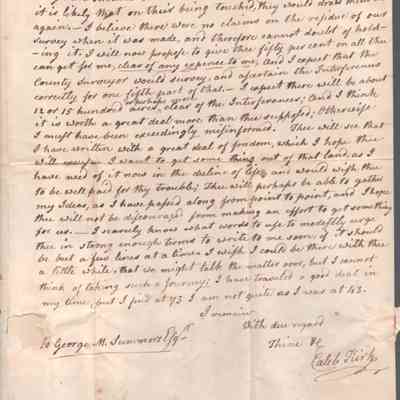 it is likely that on their being touched, they would draw
again.— I believe there were no claims on the residue of our
survey when it was made, and therefore cannot doubt of hold-
-ing it; I will now propose to give thee fifty per cent on all thee
can get for me, clear of any expence to me, and I expect that the
County Surveyor would survey, and ascertain the Interferences
correctly for one fifth part of that.— I expect there will be about
12 or 15 hundred acres, or perhaps more clear of the Interferences; (and I think
it is worth a great deal more than thee supposed, Otherwise
I must have been exceedingly misinformed. Thee will see that
I have written with a great deal of freedom, which I hope thee
will excuse. I want to get some thing out of that land, as I
have need of it now in the decline of life, and would wish thee
to be well paid for thy trouble; Thee will perhaps be able to gather
my Ideas, as I have passed along from point to point, and I hope
thee will not be discouraged from making an effort to get something
for us.— I scarcely know what words to use to modestly urge
thee in strong enough terms to write to me soon, if it should
be but a few lines at a time; I wish I could be there with thee
a little while, that we might talk the matter over, but I cannot
think of taking such a Journey; I have traveled a good deal in
my time, but I find at 73 I am not quite as I was at 43.
I remain
With due regard
Thine &c
To George W. Summers Esqr.
Caleb Kirk